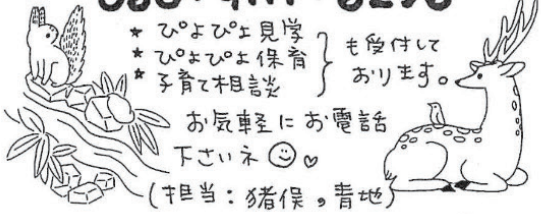 * ぴよぴよ見学
* ぴよぴよ保育
* 子育て相談
も受付して
おります。
お気軽にお電話
下さいネ☺♡
(担当：猪俣，青地)